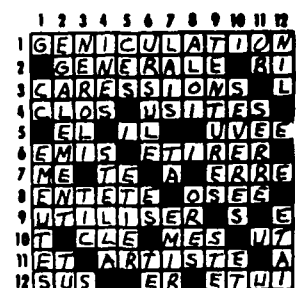 1 2 3 4 5 6 7 8 9 10 11 12
1 GENICULATION
2 GENERALE BI
3 CARESSIONS L
4 CLOS USITES
5 EL IL UVEE
6 EMIS ETIRER
7 ME TE A ERRE
8 ENTETE OSEE
9 UTILISER S E
10 T CLE MES UT
11 ET ARTISTE A
12 SUS ER ETUI